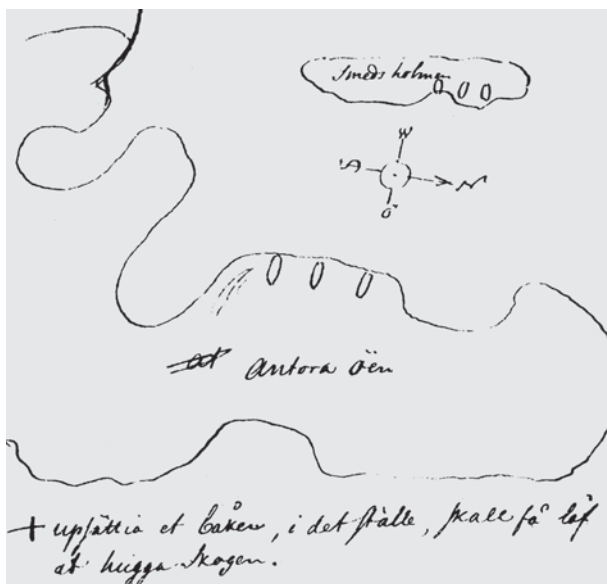 Smeds holmen
W
S
N
Ö
at Antora öen
+ upsättia et båken, i det ställe, skall få låf
at hugga skogen.